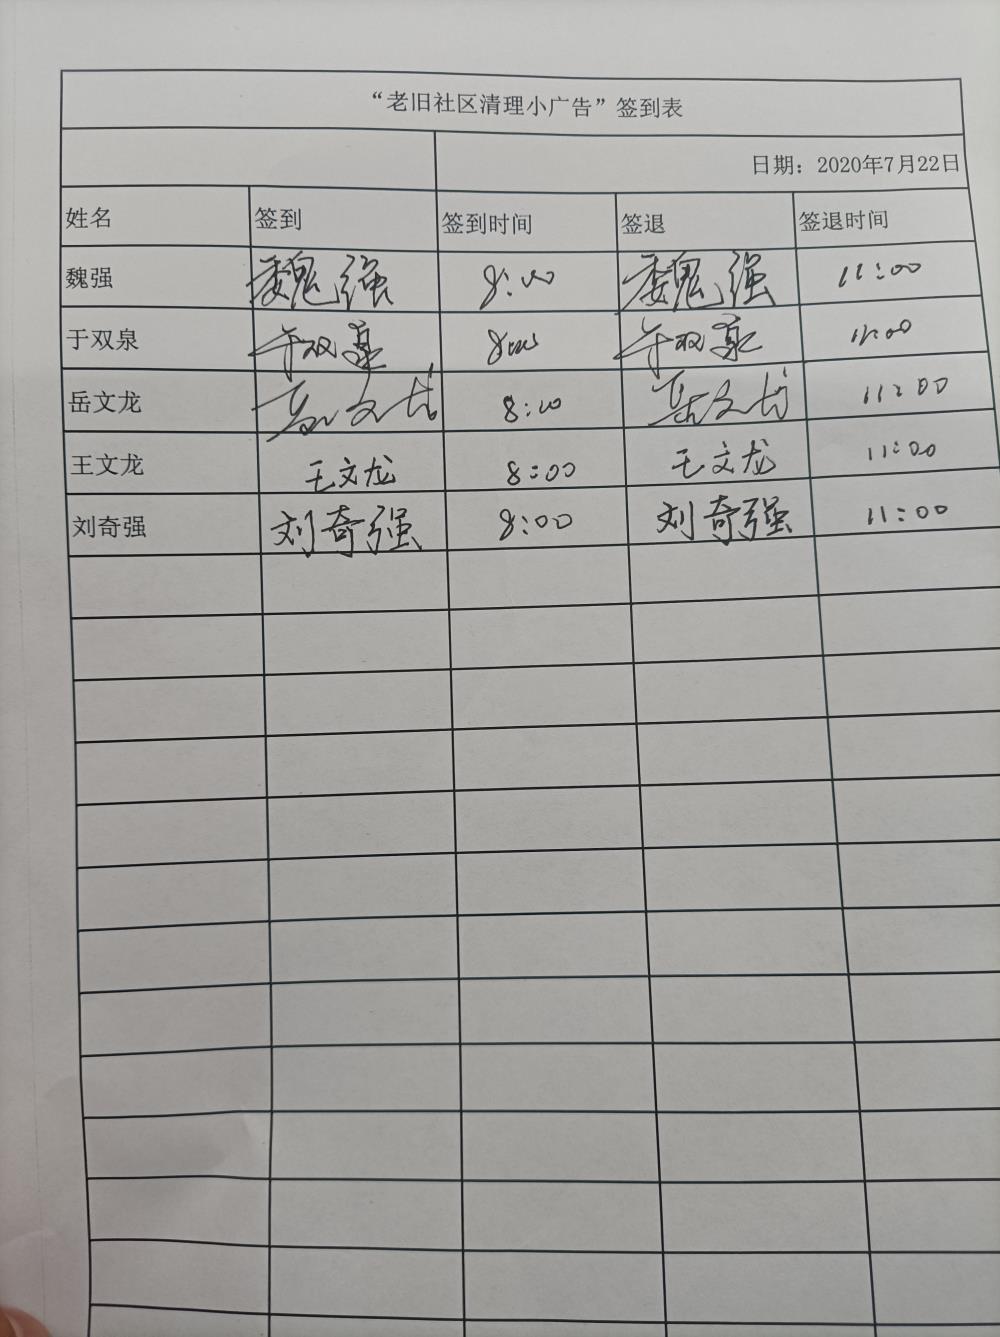 “老旧社区清理小广告”签到表
日期：2020年7月22日
姓名 签到 签到时间 签退 签退时间
魏强 魏强 8:00 魏强 11:00
于双泉 于双泉 8:00 于双泉 11:00
岳文龙 岳文龙 8:00 岳文龙 11:00
王文龙 王文龙 8:00 王文龙 11:00
刘奇强 刘奇强 8:00 刘奇强 11:00